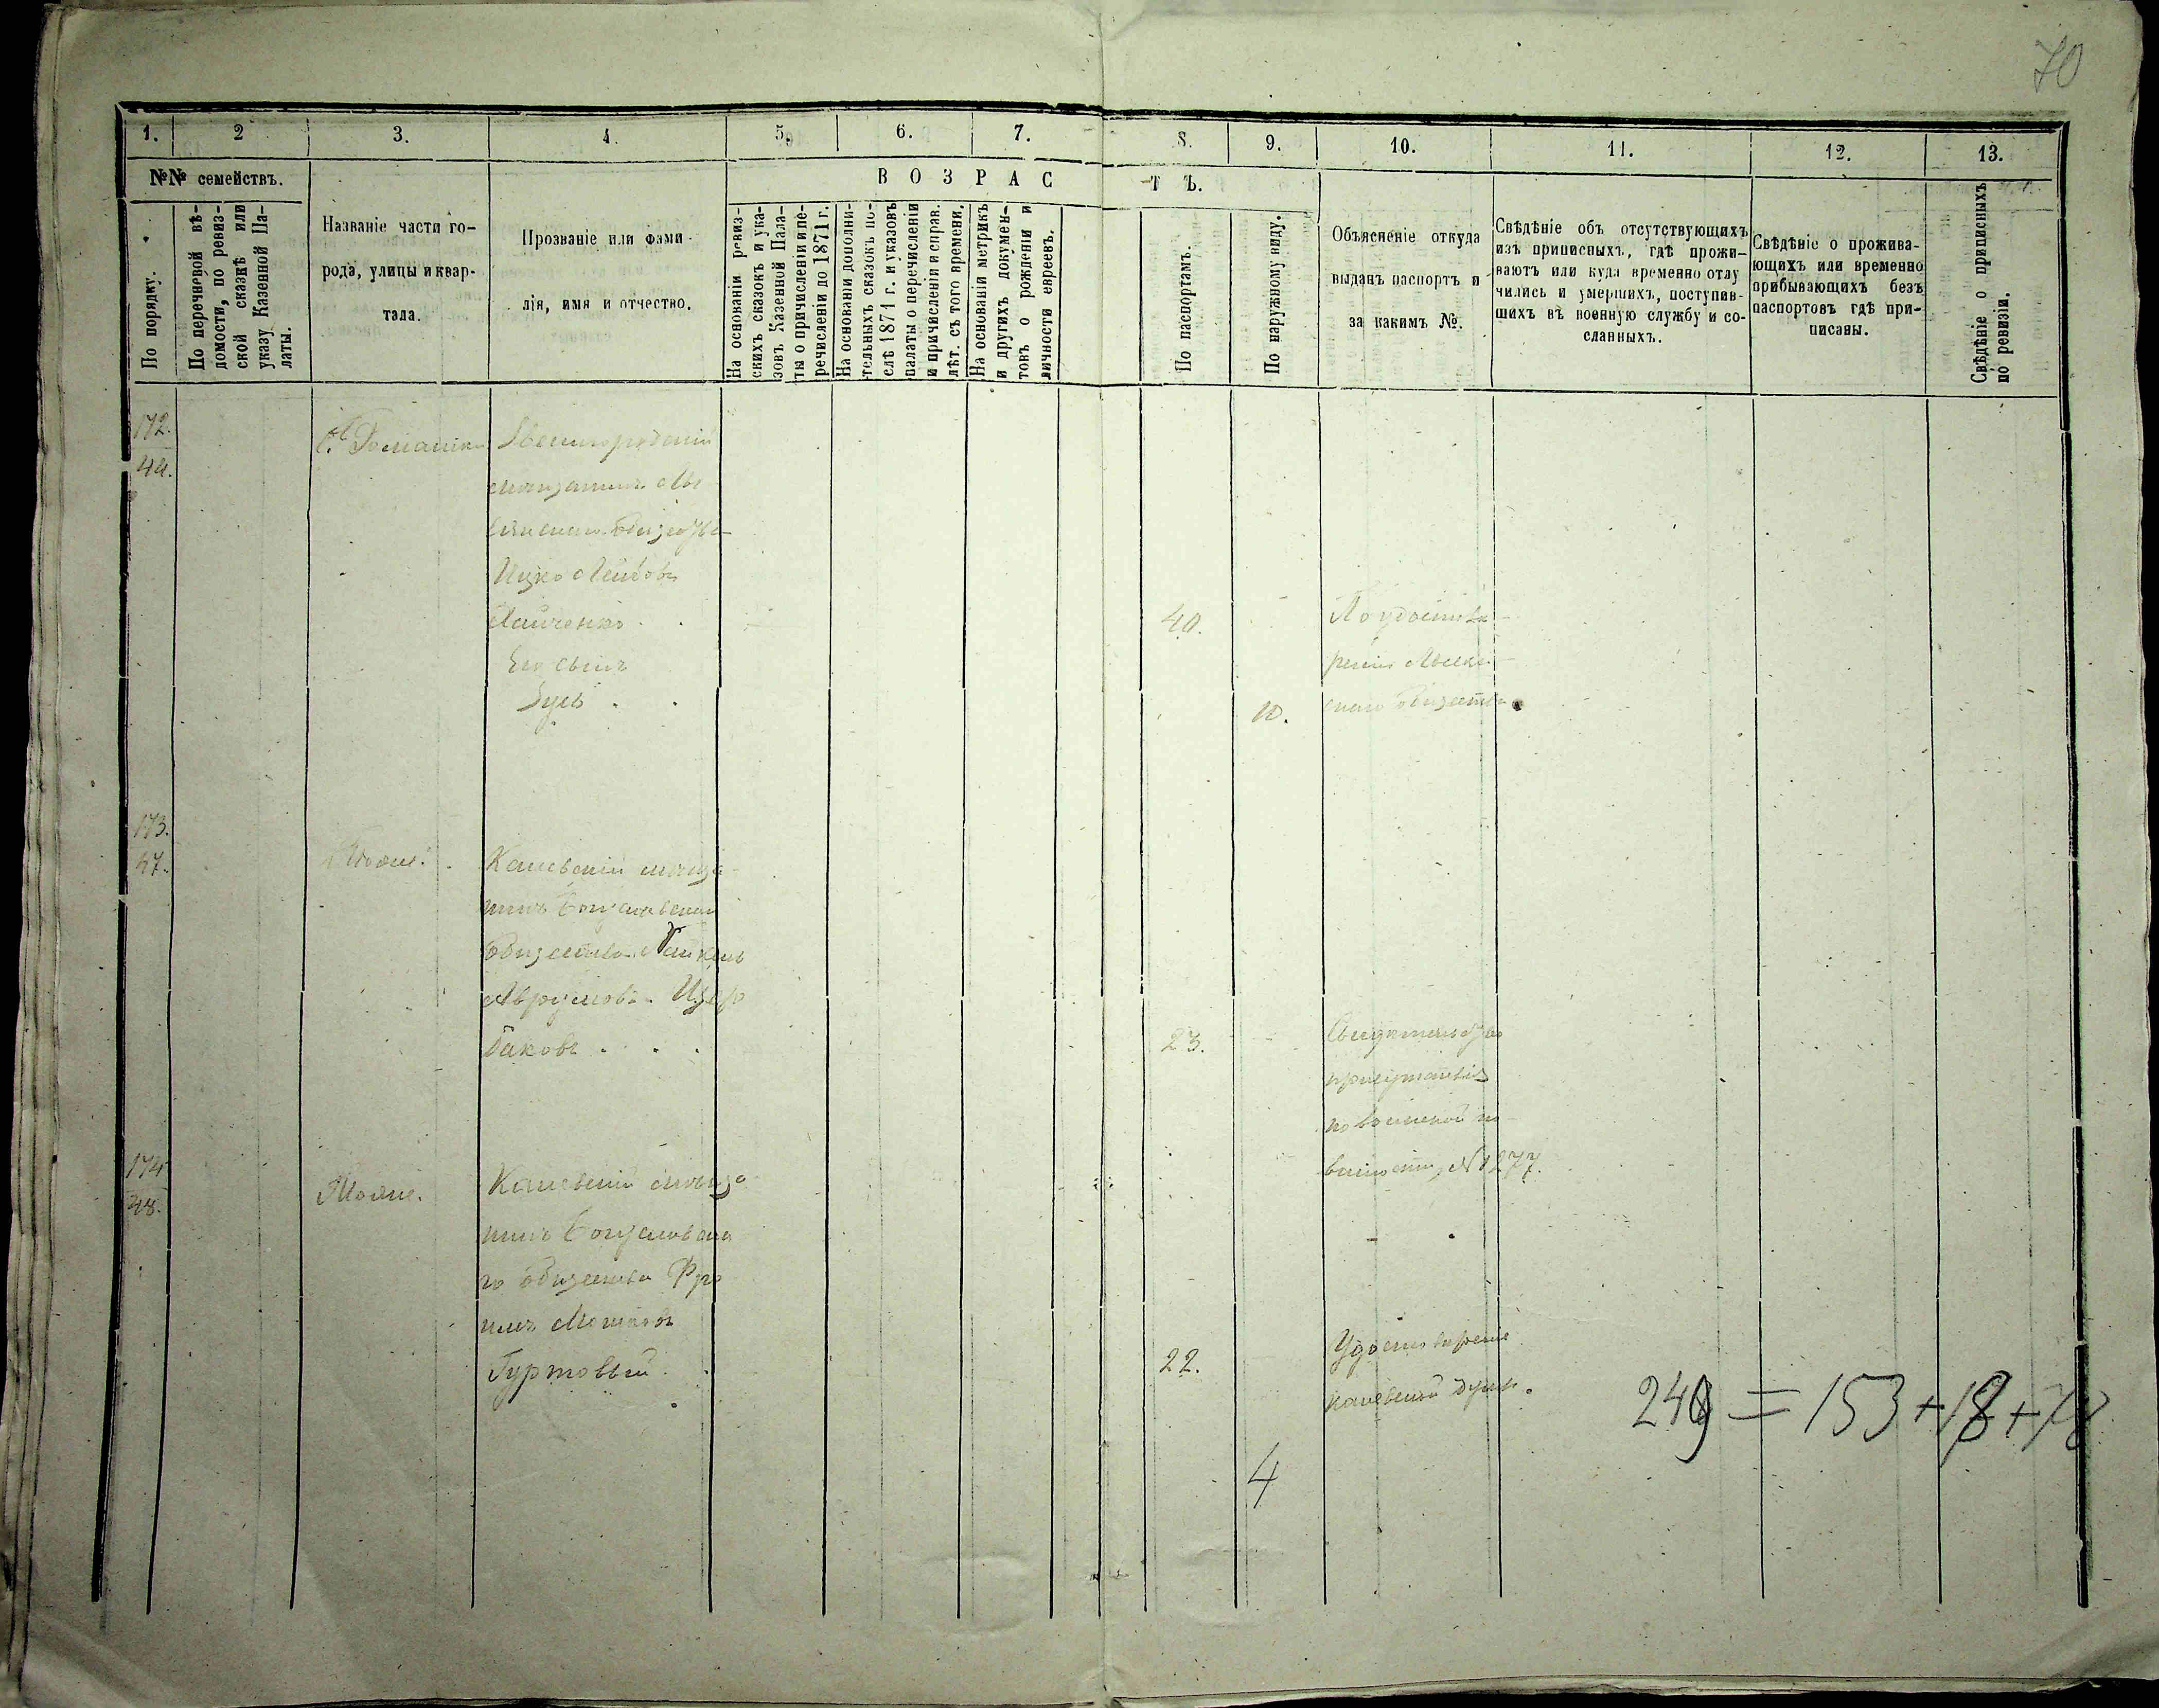 70
1. 2 3. 4. 5. 6. 7. 8. 9. 10. 11. 12. 13.
№№ семействъ.
В О З Р А С Т Ъ.
По порядку.
По перечневой вѣ-
домости, по ревиз-
ской сказкѣ или
указу Казенной Па-
латы.
Названіе части го-
рода, улицы и квар-
тала.
Прозваніе или фами-
лія, имя и отчество.
На основаніи ревиз-
скихъ сказокъ и ука-
зовъ Казенной Пала-
ты о причисленіи и пе-
речисленіи до 1871 г.
На основаніи дополни-
тельныхъ сказокъ по-
слѣ 1871 г. и указовъ
палаты о перечисленіи
и причисленіи и справ.
лѣт. съ того времени.
На основаніи метрикъ
и другихъ докумен-
товъ о рожденіи и
личности евреевъ.
По паспортамъ.
По наружному виду.
Объясненіе откуда
выданъ паспортъ и
за какимъ №.
Свѣдѣніе объ отсутствующихъ
изъ приписныхъ, гдѣ прожи-
ваютъ или куда временно отлу
чились и умершихъ, поступив-
шихъ въ военную службу и со-
сланныхъ.
Свѣдѣніе о прожива-
ющихъ или временно
прибывающихъ безъ
паспортовъ гдѣ при-
писаны.
Свѣдѣніе о приписныхъ
по ревизіи.
172.
44.
С. Ромашки
Звенигородскій
мѣщанинъ
общества
Ицко Лейбовъ
40.
По удостовѣ-
реніи
Его сынъ
Зусь
10.
скаго общества
173.
47.
Тоже.
Каневскій мѣща-
нинъ Богуславскаго
общества
Аврумовъ
баковъ
23.
Свидѣтельство
присутствія
по воинской по-
винности, № 1277.
174
48.
Тоже.
Каневскій мѣща
нинъ Богуславска
го общества Фро
имъ Мошковъ
Гуртовый
22.
Удостовѣреніе
каневской думы.
4
249 = 153 + 18 + 78